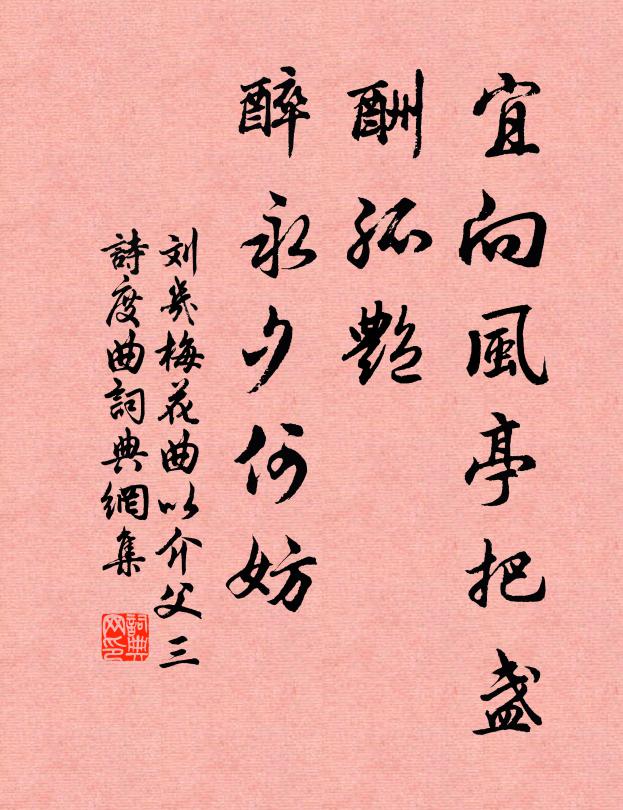 宜向風亭把盞
酬孤艷
醉永夕何妨
刘幾梅花曲以介父三
詩度曲詞典網集
詞典網印